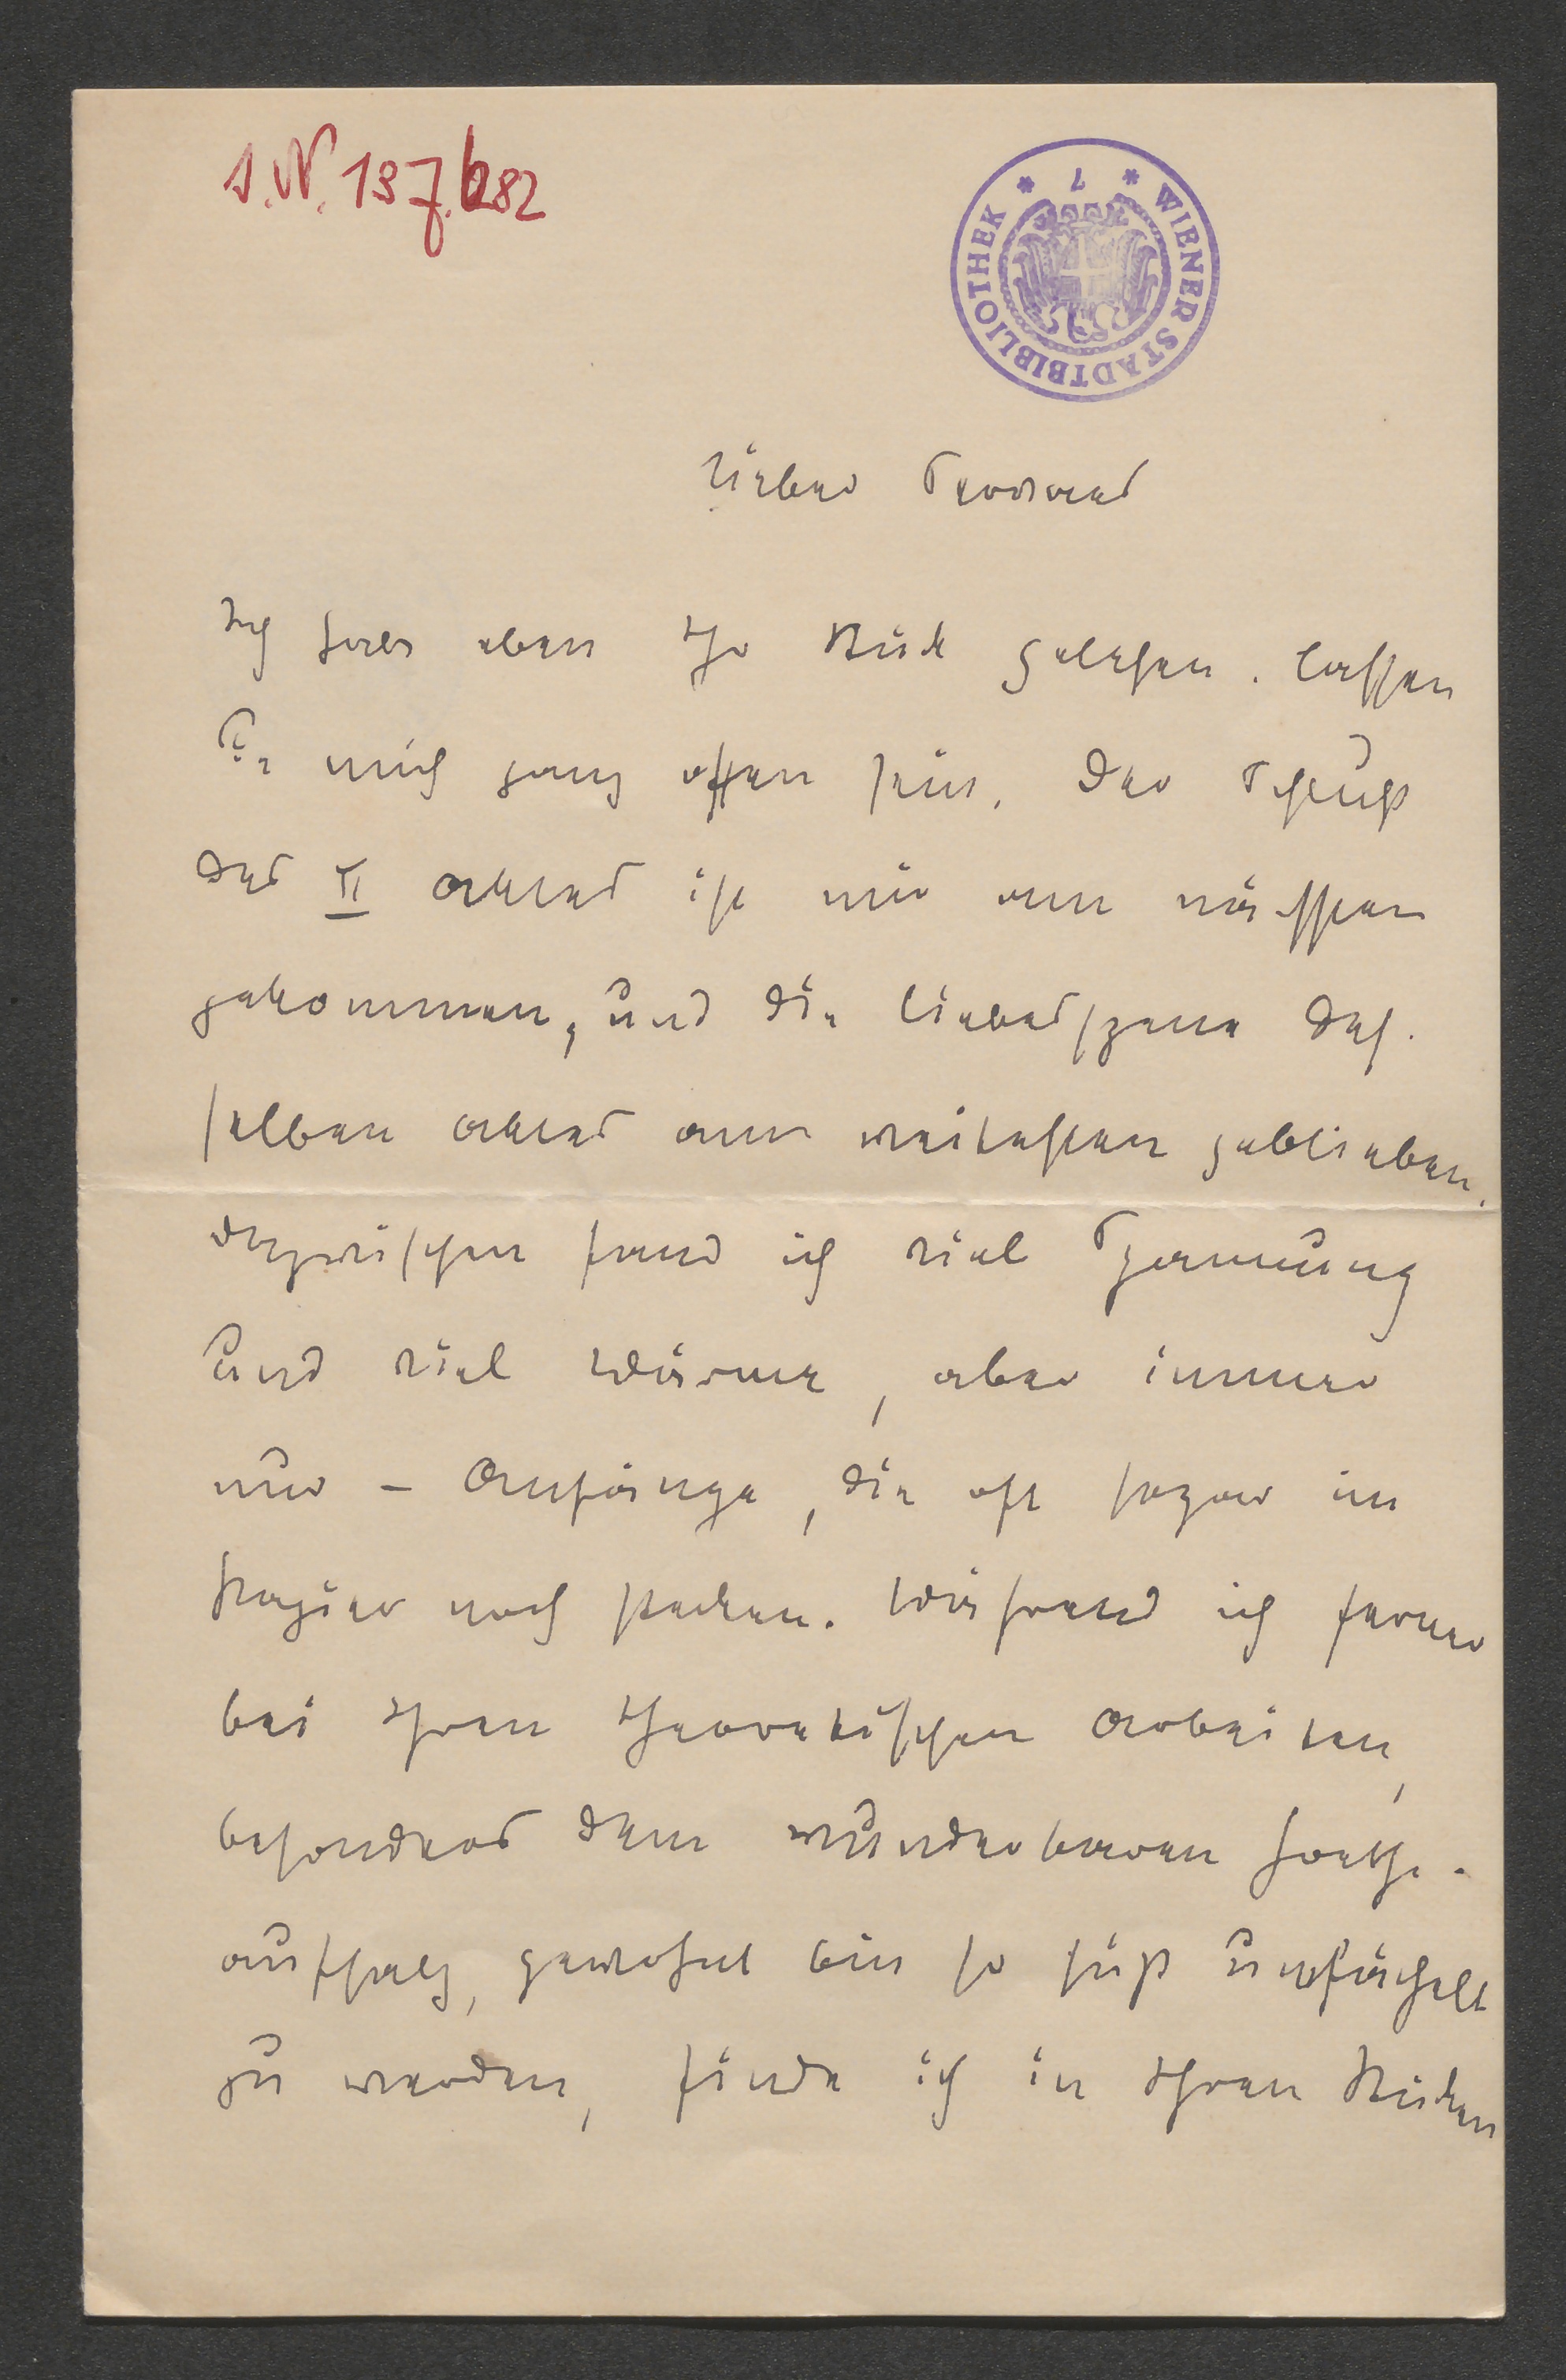 I.N. 197.682
WIENER STADTBIBLIOTHEK * 7 *
Lieber
Ich habe eben Ihr Stück gelesen. Lassen
Sie mich ganz offen sein. Der Schluß
des II Aktes ist mir am nächsten
gekommen, und die Liebesszene des-
selben Aktes am weitesten geblieben.
dazwischen fand ich viel Spannung
und viel Wärme, aber immer
nur – Anfänge, die oft sogar im
Papier noch stecken. Während ich ferner
bei Ihren theoretischen Arbeiten,
besonders dem wunderbaren Goethe-
aufsatz, gewohnt bin so süß umfächelt
zu werden, finde ich in Ihren Stücken